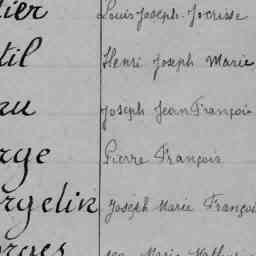 ier Louis Joseph Jocrisse
til Henri Joseph Marie
au Joseph Jean François
rge Pierre François
rgelin Joseph Marie François
orges Marie